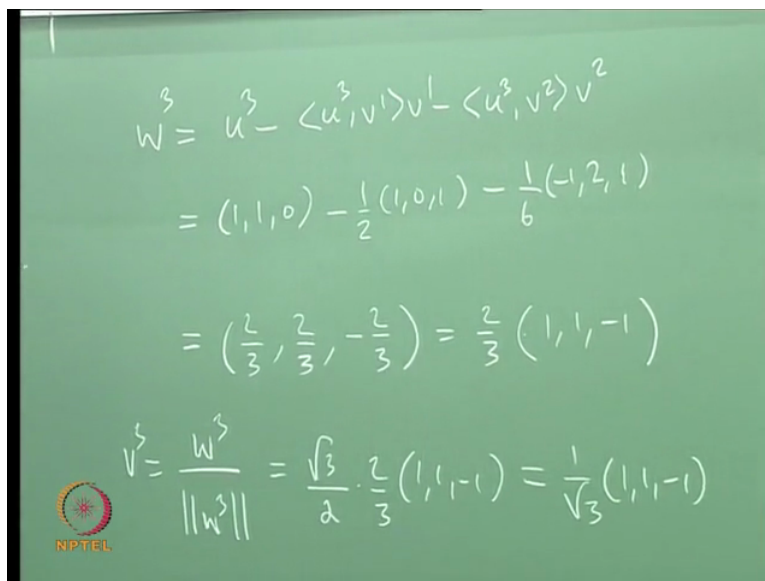 w³ = u³ - <u³, v¹>v¹ - <u³, v²>v²
= (1, 1, 0) - 1/2 (1, 0, 1) - 1/6 (-1, 2, 1)
= (2/3, 2/3, -2/3) = 2/3 (1, 1, -1)
v³ = w³/||w³|| = √3/2 · 2/3 (1, 1, -1) = 1/√3 (1, 1, -1)
NPTEL